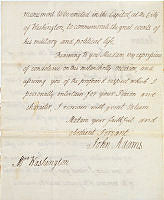 monument to be erected in the Capitol, at the City
of Washington, to commemorate the great events of
his military and political life.
Renewing to you Madam my expressions
of condolence on this melancholy occasion, and
assuring you of the profound respect which I
personally entertain for your Person and
Character, I remain with great Esteem
Madam your faithful and
obedient Servant
John Adams
Mrs Washington